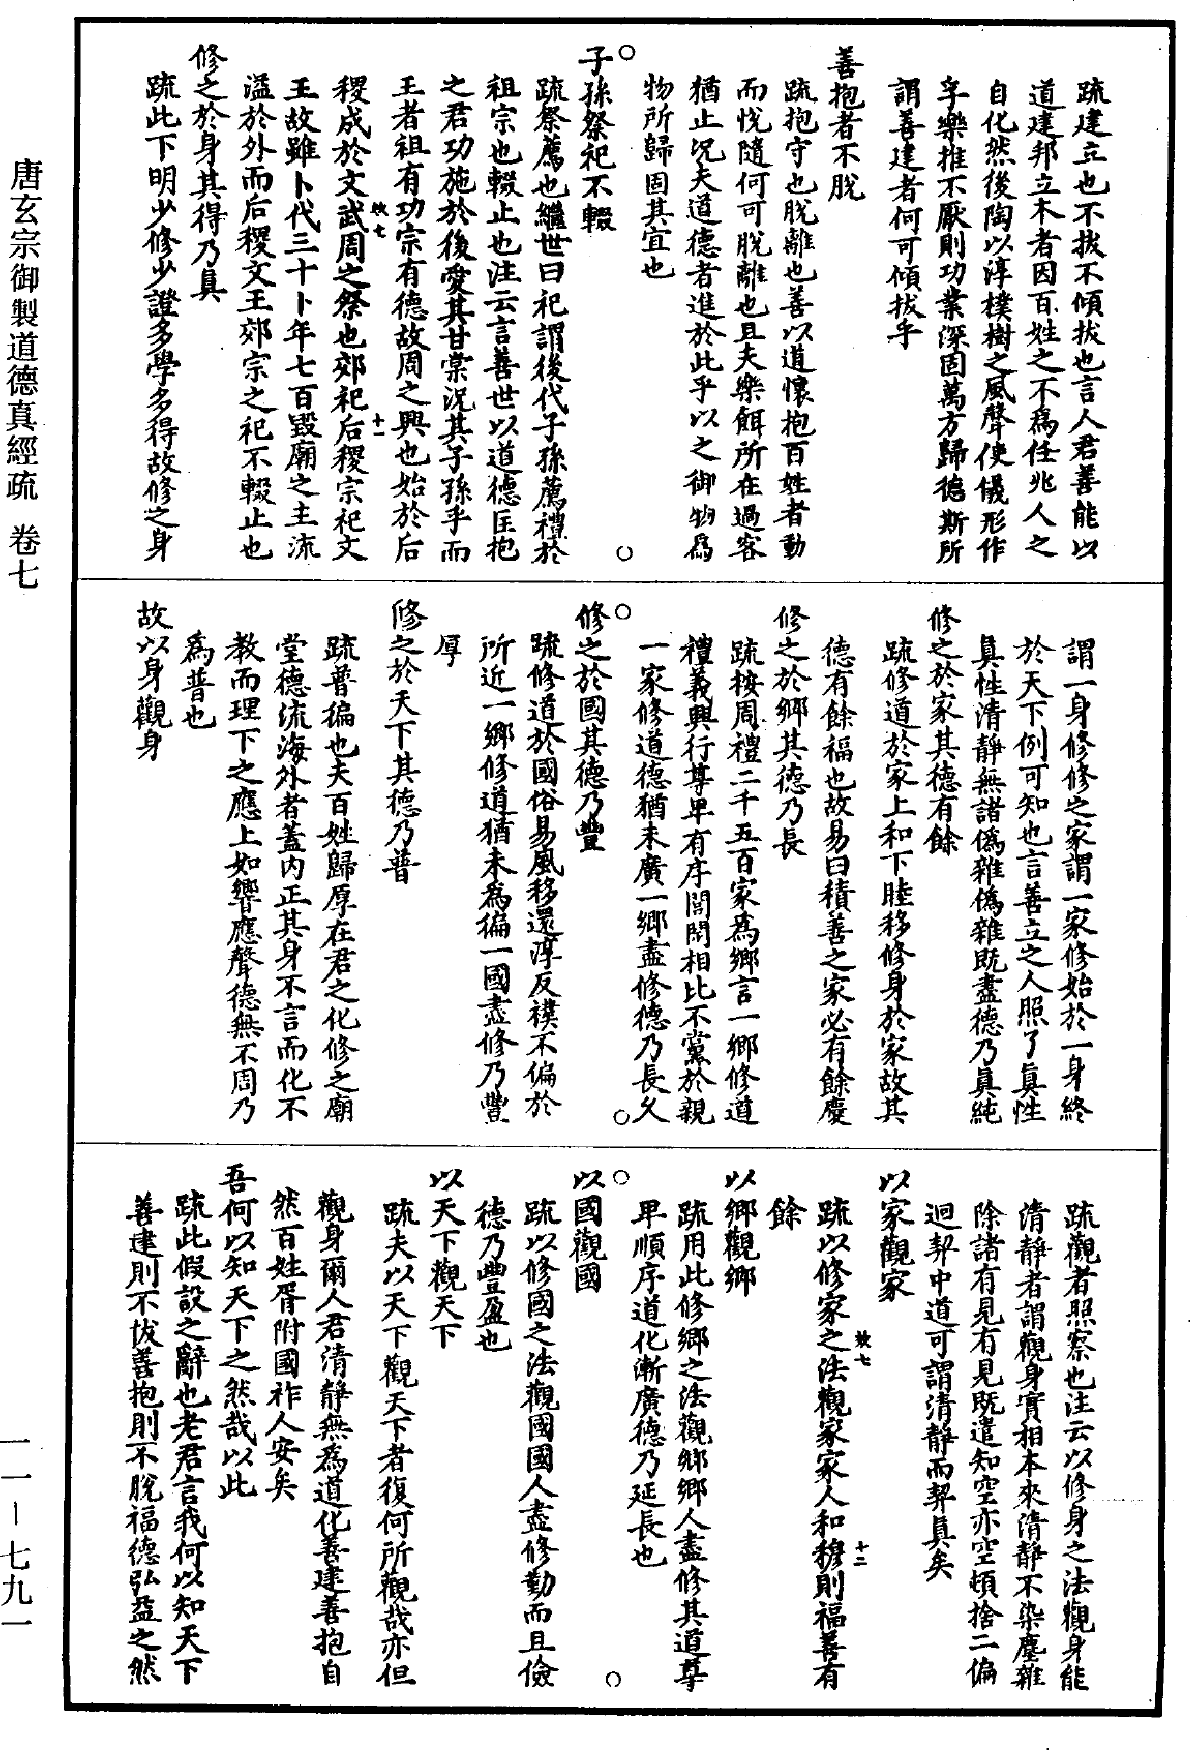 疏建立也不拔不傾拔也言人君善能以
道建邦立本者因百姓之不爲任兆人之
自化然後陶以淳樸樹之風聲使儀形作
孚樂推不厭則功業深固萬方歸德斯所
謂善建者何可傾拔乎
善抱者不脫
疏抱守也脫離也善以道懷抱百姓者動
而悅隨何可脫離也且夫樂餌所在過客
猶止況夫道德者進於此乎以之御物爲
物所歸固其宜也
子孫祭祀不輟
疏祭薦也繼世曰祀謂後代子孫薦禮於
祖宗也輟止也注云言善世以道德匡抱
之君功施於後愛其甘棠況其子孫乎而
王者祖有功宗有德故周之興也始於后
稷成於文武周之祭也郊祀后稷宗祀文
王故雖卜代三十卜年七百毀廟之主流
溢於外而后稷文王郊宗之祀不輟止也
修之於身其得乃眞
疏此下明少修少證多學多得故修之身
謂一身修修之家謂一家修始於一身終
於天下例可知也言善立之人照了眞性
眞性清靜無諸僞雜僞雜既盡德乃眞純
修之於家其德有餘
疏修道於家上和下睦移修身於家故其
德有餘福也故易曰積善之家必有餘慶
修之於鄉其德乃長
疏按周禮二千五百家爲鄉言一鄉修道
禮義興行尊卑有序閭閈相比不黨於親
一家修道德猶未廣一鄉盡修德乃長久
修之於國其德乃豐
疏修道於國俗易風移還淳反樸不偏於
所近一鄉修道猶未爲徧一國盡修乃豐
厚
修之於天下其德乃普
疏普徧也夫百姓歸厚在君之化修之廟
堂德流海外者蓋內正其身不言而化不
教而理下之應上如響應聲德無不周乃
爲普也
故以身觀身
疏觀者照察也注云以修身之法觀身能
清靜者謂觀身實相本來清靜不染塵雜
除諸有見有見既遣知空亦空頓捨二偏
迥契中道可謂清靜而契眞矣
以家觀家
疏以修家之法觀家家人和穆則福善有
餘
以鄉觀鄉
疏用此修鄉之法觀鄉鄉人盡修其道尊
卑順序道化漸廣德乃延長也
以國觀國
疏以修國之法觀國國人盡修勤而且儉
德乃豐盈也
以天下觀天下
疏夫以天下觀天下者復何所觀哉亦但
觀身爾人君清靜無爲道化善建善抱自
然百姓胥附國祚人安矣
吾何以知天下之然哉以此
疏此假設之辭也老君言我何以知天下
善建則不拔善抱則不脫福德弘益之然
唐玄宗御製道德真經疏 卷七
一一－七九一